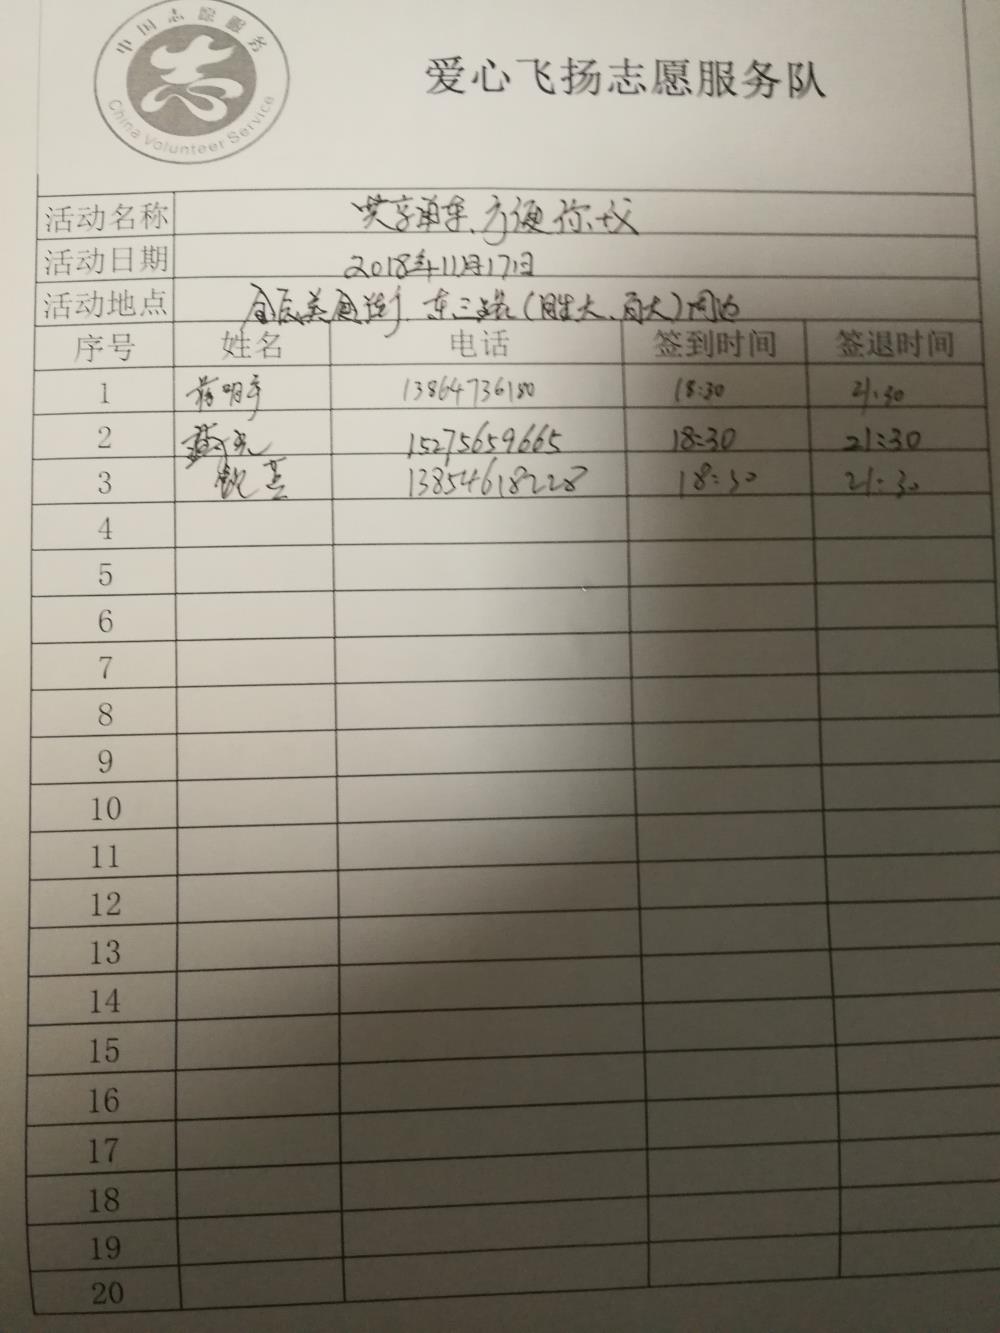 中国志愿服务
China Volunteer Service
爱心飞扬志愿服务队
活动名称 共享单车、方便你我
活动日期 2018年11月17日
活动地点 东三路(胜大、百大)周边
序号 姓名 电话 签到时间 签退时间
1 13864736180 18:30 21:30
2 15275659665 18:30 21:30
3 13854618228 18:30 21:30
4
5
6
7
8
9
10
11
12
13
14
15
16
17
18
19
20